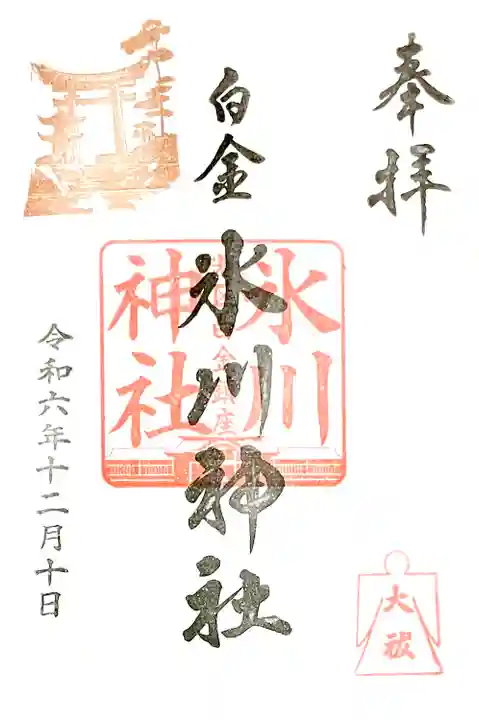 奉拝
白金
氷川神社
氷川
神社
金鎮座
令和六年十二月十日
大祓